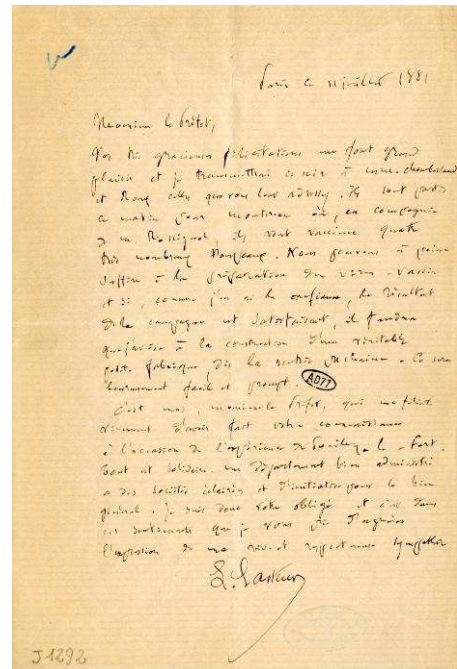 Paris ce 11 juillet 1881
Monsieur le Préfet,
Vos très gracieuses félicitations me font grand
plaisir et je transmettrai ce soir à MM. Chamberland
et Roux celles que vous leur adressez. Ils sont partis
ce matin pour Montereau où, en compagnie
de M. Rossignol, ils vont vacciner quatre
très nombreux troupeaux. Nous pouvons à peine
suffire à la préparation du virus-vaccin
et si, comme j'en ai la confiance, le résultat
de la campagne est satisfaisant, il faudra
que j'avise à la construction d'une véritable
petite fabrique, dès la rentrée prochaine. Ce sera
heureusement facile et prompt.
AD77
C'est moi, monsieur le Préfet, qui me félicite
vivement d'avoir fait votre connaissance
à l'occasion de l'expérience de Pouilly-le-Fort.
Tout est solidaire. Un département bien administré
a des sociétés éclairées et d'initiative pour le bien
général. Je suis donc votre obligé et c'est dans
ces sentiments que je vous prie d'agréer
l'expression de ma vive et respectueuse sympathie
L. Pasteur
J1292